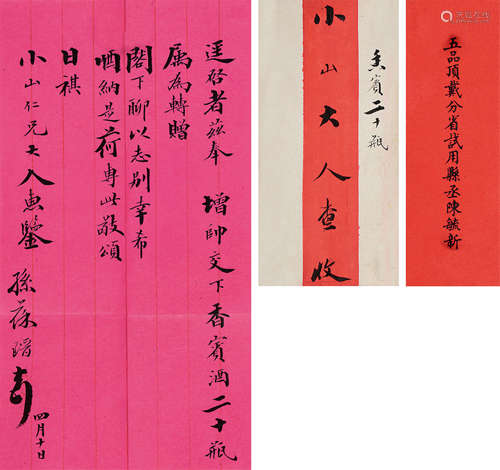 逕啓者茲奉 增帥交下香賓酒二十瓶
属為轉贈
閣下聊以志別幸希
哂納是荷專此敬頌
日祺
小山仁兄大人惠鑒 孫葆瑨
四月十日
香賓二十瓶
小山大人查收
五品頂戴分省試用縣丞陳毓新